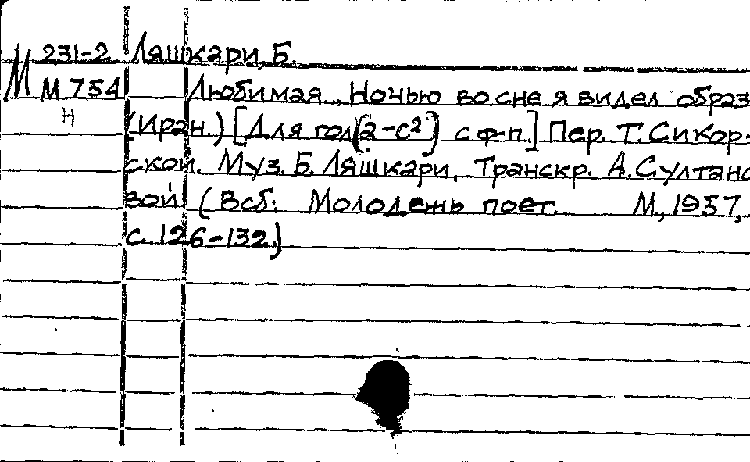 М 231-2 Ляшкари, Б.
М 754 Любимая. Ночью во сне я видел образ
Н (Иран.) [Для гол. (2-с²) с ф-п.] Пер. Т. Сикор-
ской. Муз. Б. Ляшкари. Транскр. А. Султано
вой. (В сб: Молодежь поет. М, 1957,
с. 126-132.)